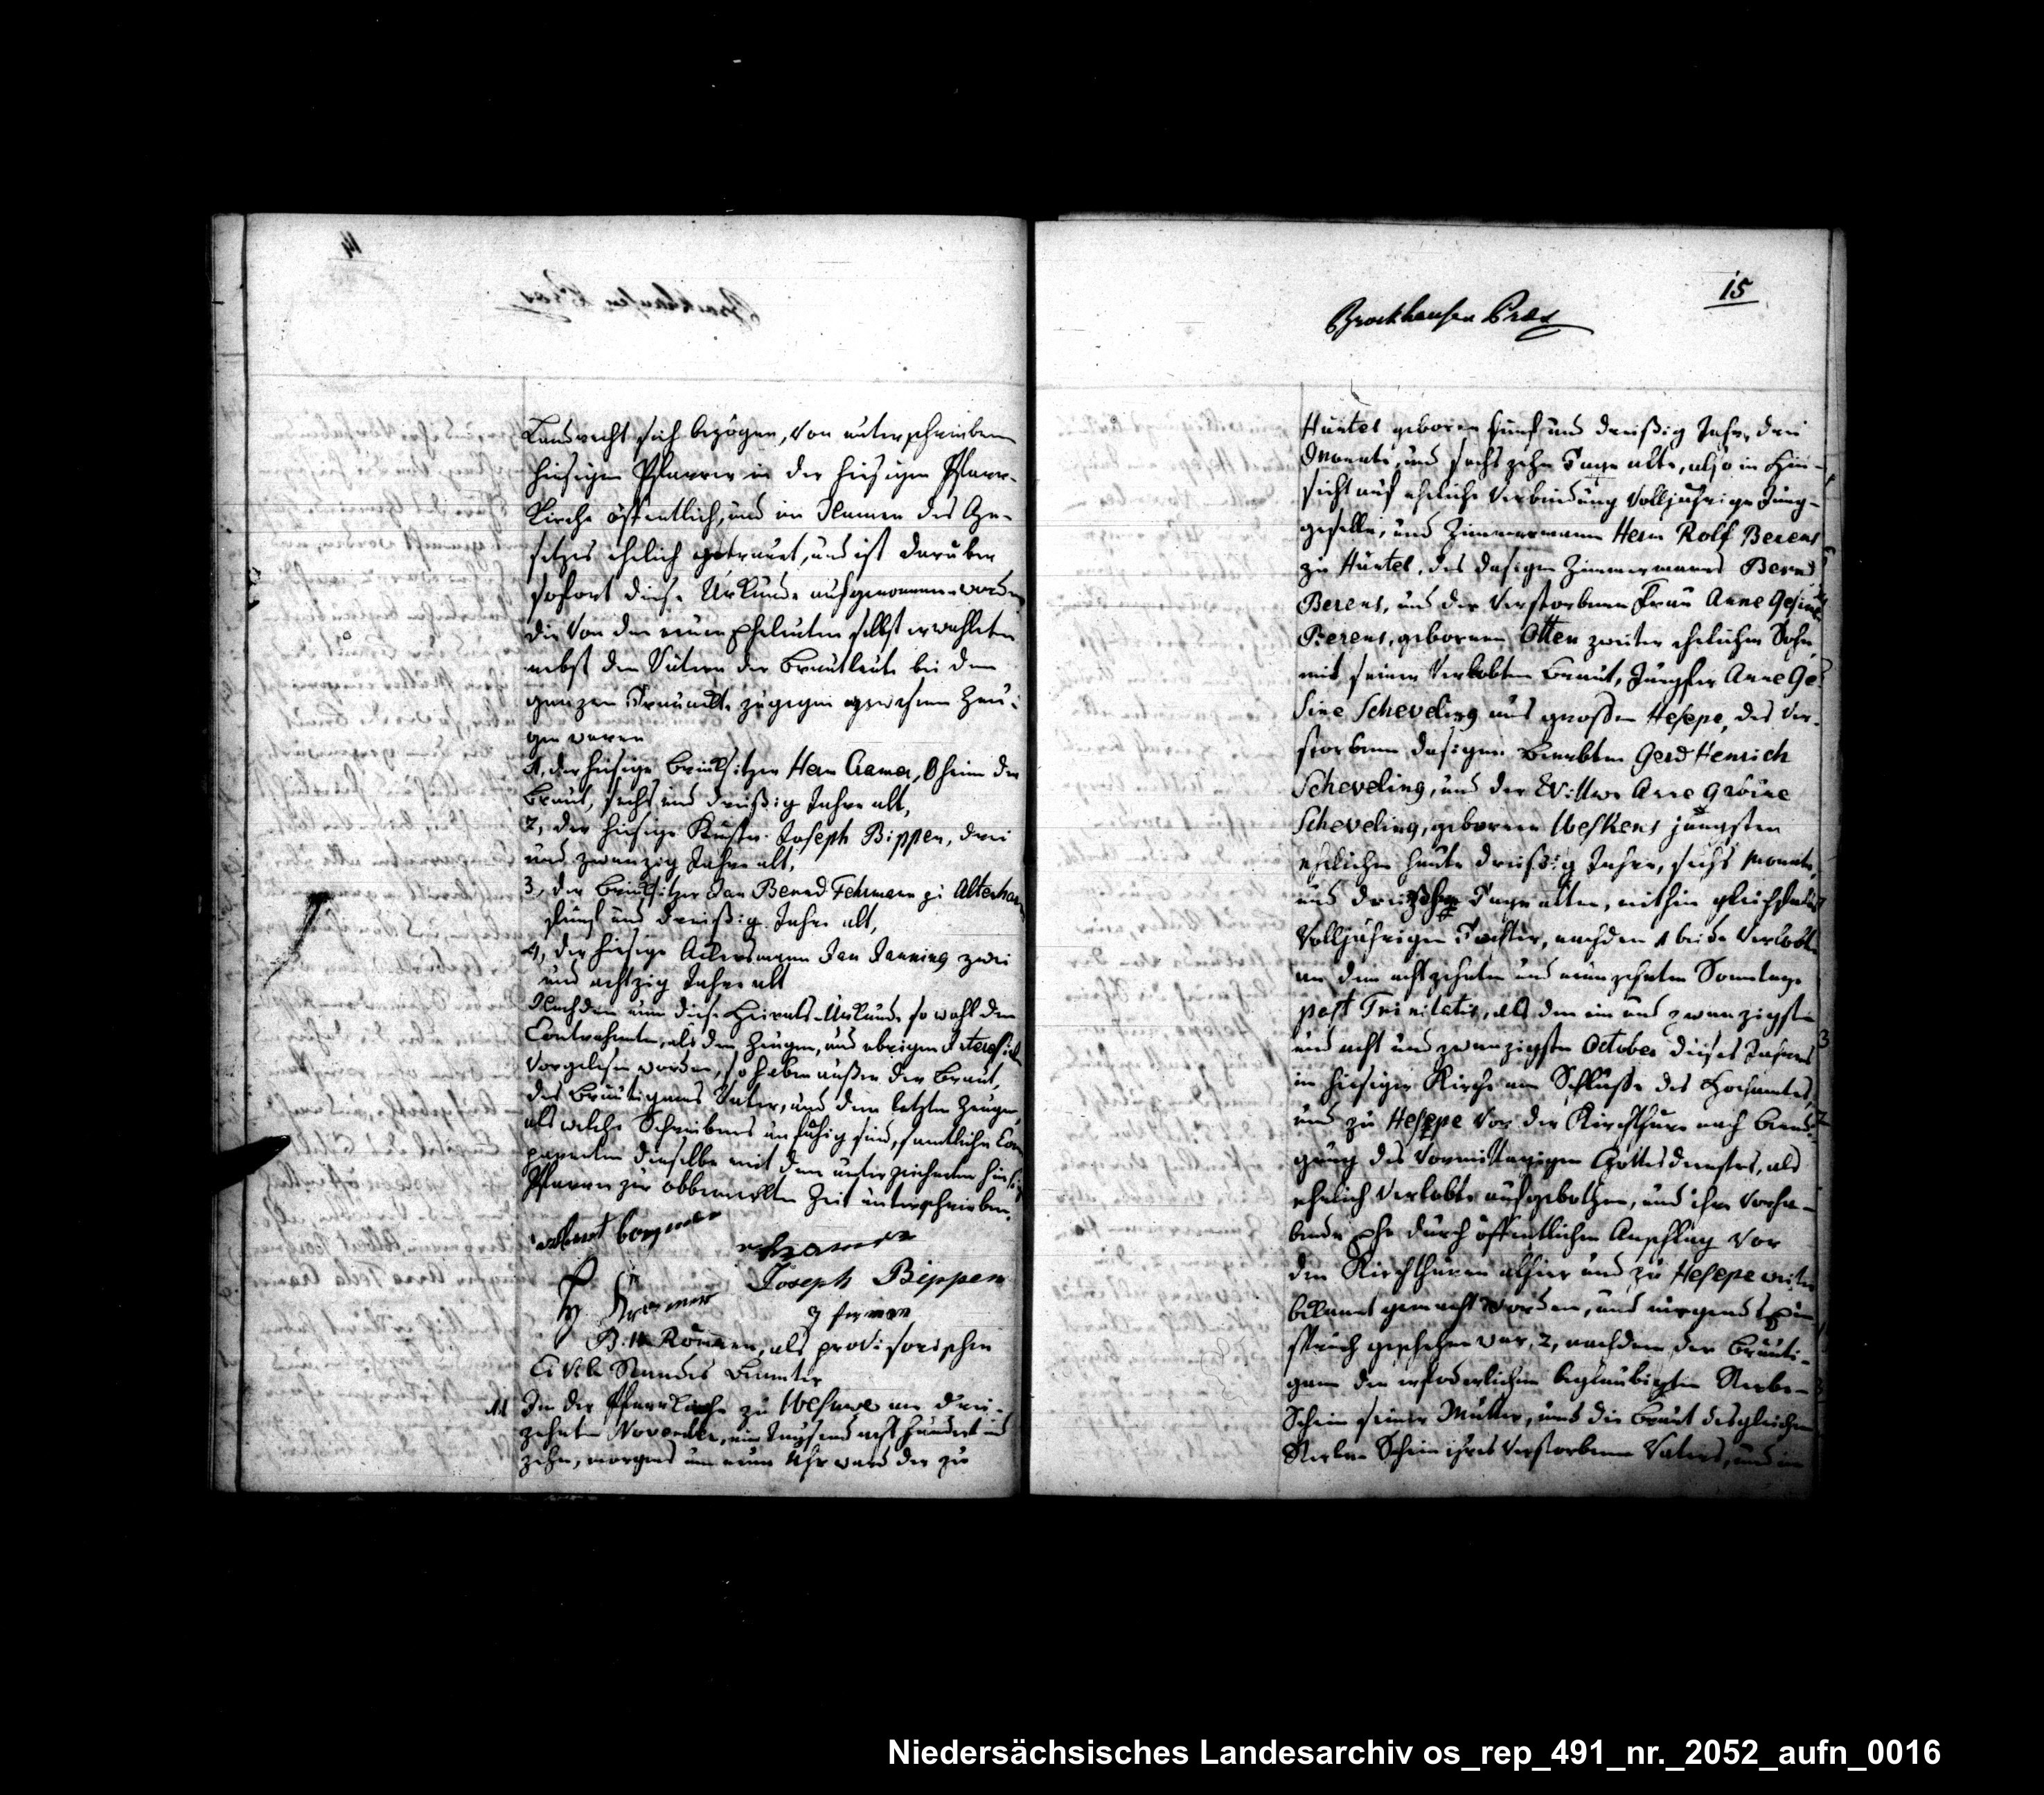 Landrecht sich bezogen, von unterschriebenem
hiesigen Pfarrer in der hiesigen Pfarr-
Kirche öffentlich, und im Namen des Ge-
setzes ehelich getrauet, und ist darüber
sofort diese Urkunde aufgenommen worden
die von den neuen Eheleuten selbst erwahlten
nebst den Vätern der Brautleute bei dem
ganzen Trauackte zugegen gewesenen Zeu-
gen waren
1, der hiesige Brinksitzer Herm Cramer, Oheim der
Braut, sechs und dreißig Jahre alt,
2, der hiesige Küster Joseph Bippen, drei
und zwanzig Jahre alt,
3, der Brinksitzer Jan Bernd Fehrmann zu Alterharen
fünf und dreißig Jahre alt,
4, der hiesige Ackersmann Jan Janning zwei
und achtzig Jahre alt
Nachdem nun diese Heirats-Urkunde so wohl den
Contrahenten, als den Zeugen, und übrigen
vorgelesen worden, so haben außer der Braut,
des Bräutigams Vater, und dem letzten Zeugen,
als welche Schreibens unfähig sind, samtliche Com
parenten dieselbe mit dem unterzeichneten
Pfarrer zur obbemerkten Zeit unterschrieben.
Joseph Bippen
B. H. Römann, als provisorischer
Civil Standes Beamter
11 In der Pfarrkirche zu Wesuwe am drei-
zehnten November, ein Tausend acht hundert und
zehn, morgens um neun Uhr ward der zu
15
Brockhausen Pras
Huntel geboren fünf und dreißig Jahr, drei
Monate, und sechszehn Tage alte, also in Hin-
sicht auf eheliche Verbindung volljährige Jung-
geselle, und Zimmermann Herm Rolf Berens
zu Huntel, des dasigen Zimmermanns Bernd
Berens, und der verstorbenen Frau Anne Gesine
Berens, gebornen Otten zweiter ehelicher Sohn,
mit seiner Verlobten Braut, Jungfer Anne Ge-
sine Scheveling aus großen Hesepe, des ver-
storbenen dasigen Beerbten Gerd Henrich
Scheveling, und der Wittwe Anne
Scheveling, gebornen Weskens jüngsten
ehelichen heute dreißig Jahre, sechs Monate,
und Tage alten, mithin gleichfalls
Volljährigen Tochter, nachdem 1 beide Verlobte
an dem achtzehnten und neunzehnten Sonntage
post Trinitatis, als den ein und zwanzigsten
und acht und zwanzigsten October dieses Jahres
in hiesiger Kirche am Schluße des Hochamtes,
und zu Hesepe vor der Kirchthure nach Beendi-
gung des Vormittagigen Gottesdienstes, als
ehelich Verlobte aufgebothen, und ihre vorha-
bende Ehe durch öffentlichen Anschlag vor
den Kirchthüren alhier und zu Hesepe weiter
bekannt gemacht worden, und nirgends Ein-
spruch geschehen war, 2, nachdem der Bräuti-
gam den erfoderlichen beglaubigten Sterbe-
Schein seiner Mutter, und die Braut desgleichen
Sterbe-Schein ihres verstorbenen Vaters, und
Niedersächsisches Landesarchiv os_rep_491_nr._2052_aufn_0016